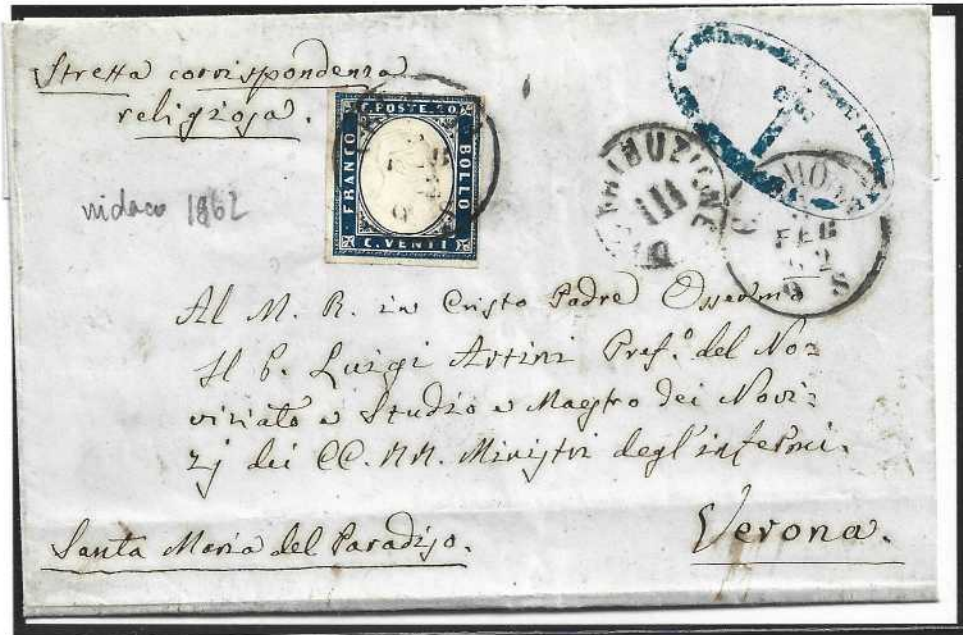 Stretta corrispondenza
religiosa.
C. POSTE 20
FRANCO
BOLLO
C. VENTI
1862
DISTRIBUZIONE
III
FEB
62
9 S
Al M. R. in Cristo Padre
Il P. Luigi Artini Pref.º del No=
viziato e Studio e Maestro dei Novi=
zj dei CC. RR. Ministri degl'infermi.
Santa Maria del Paradiso.
Verona.